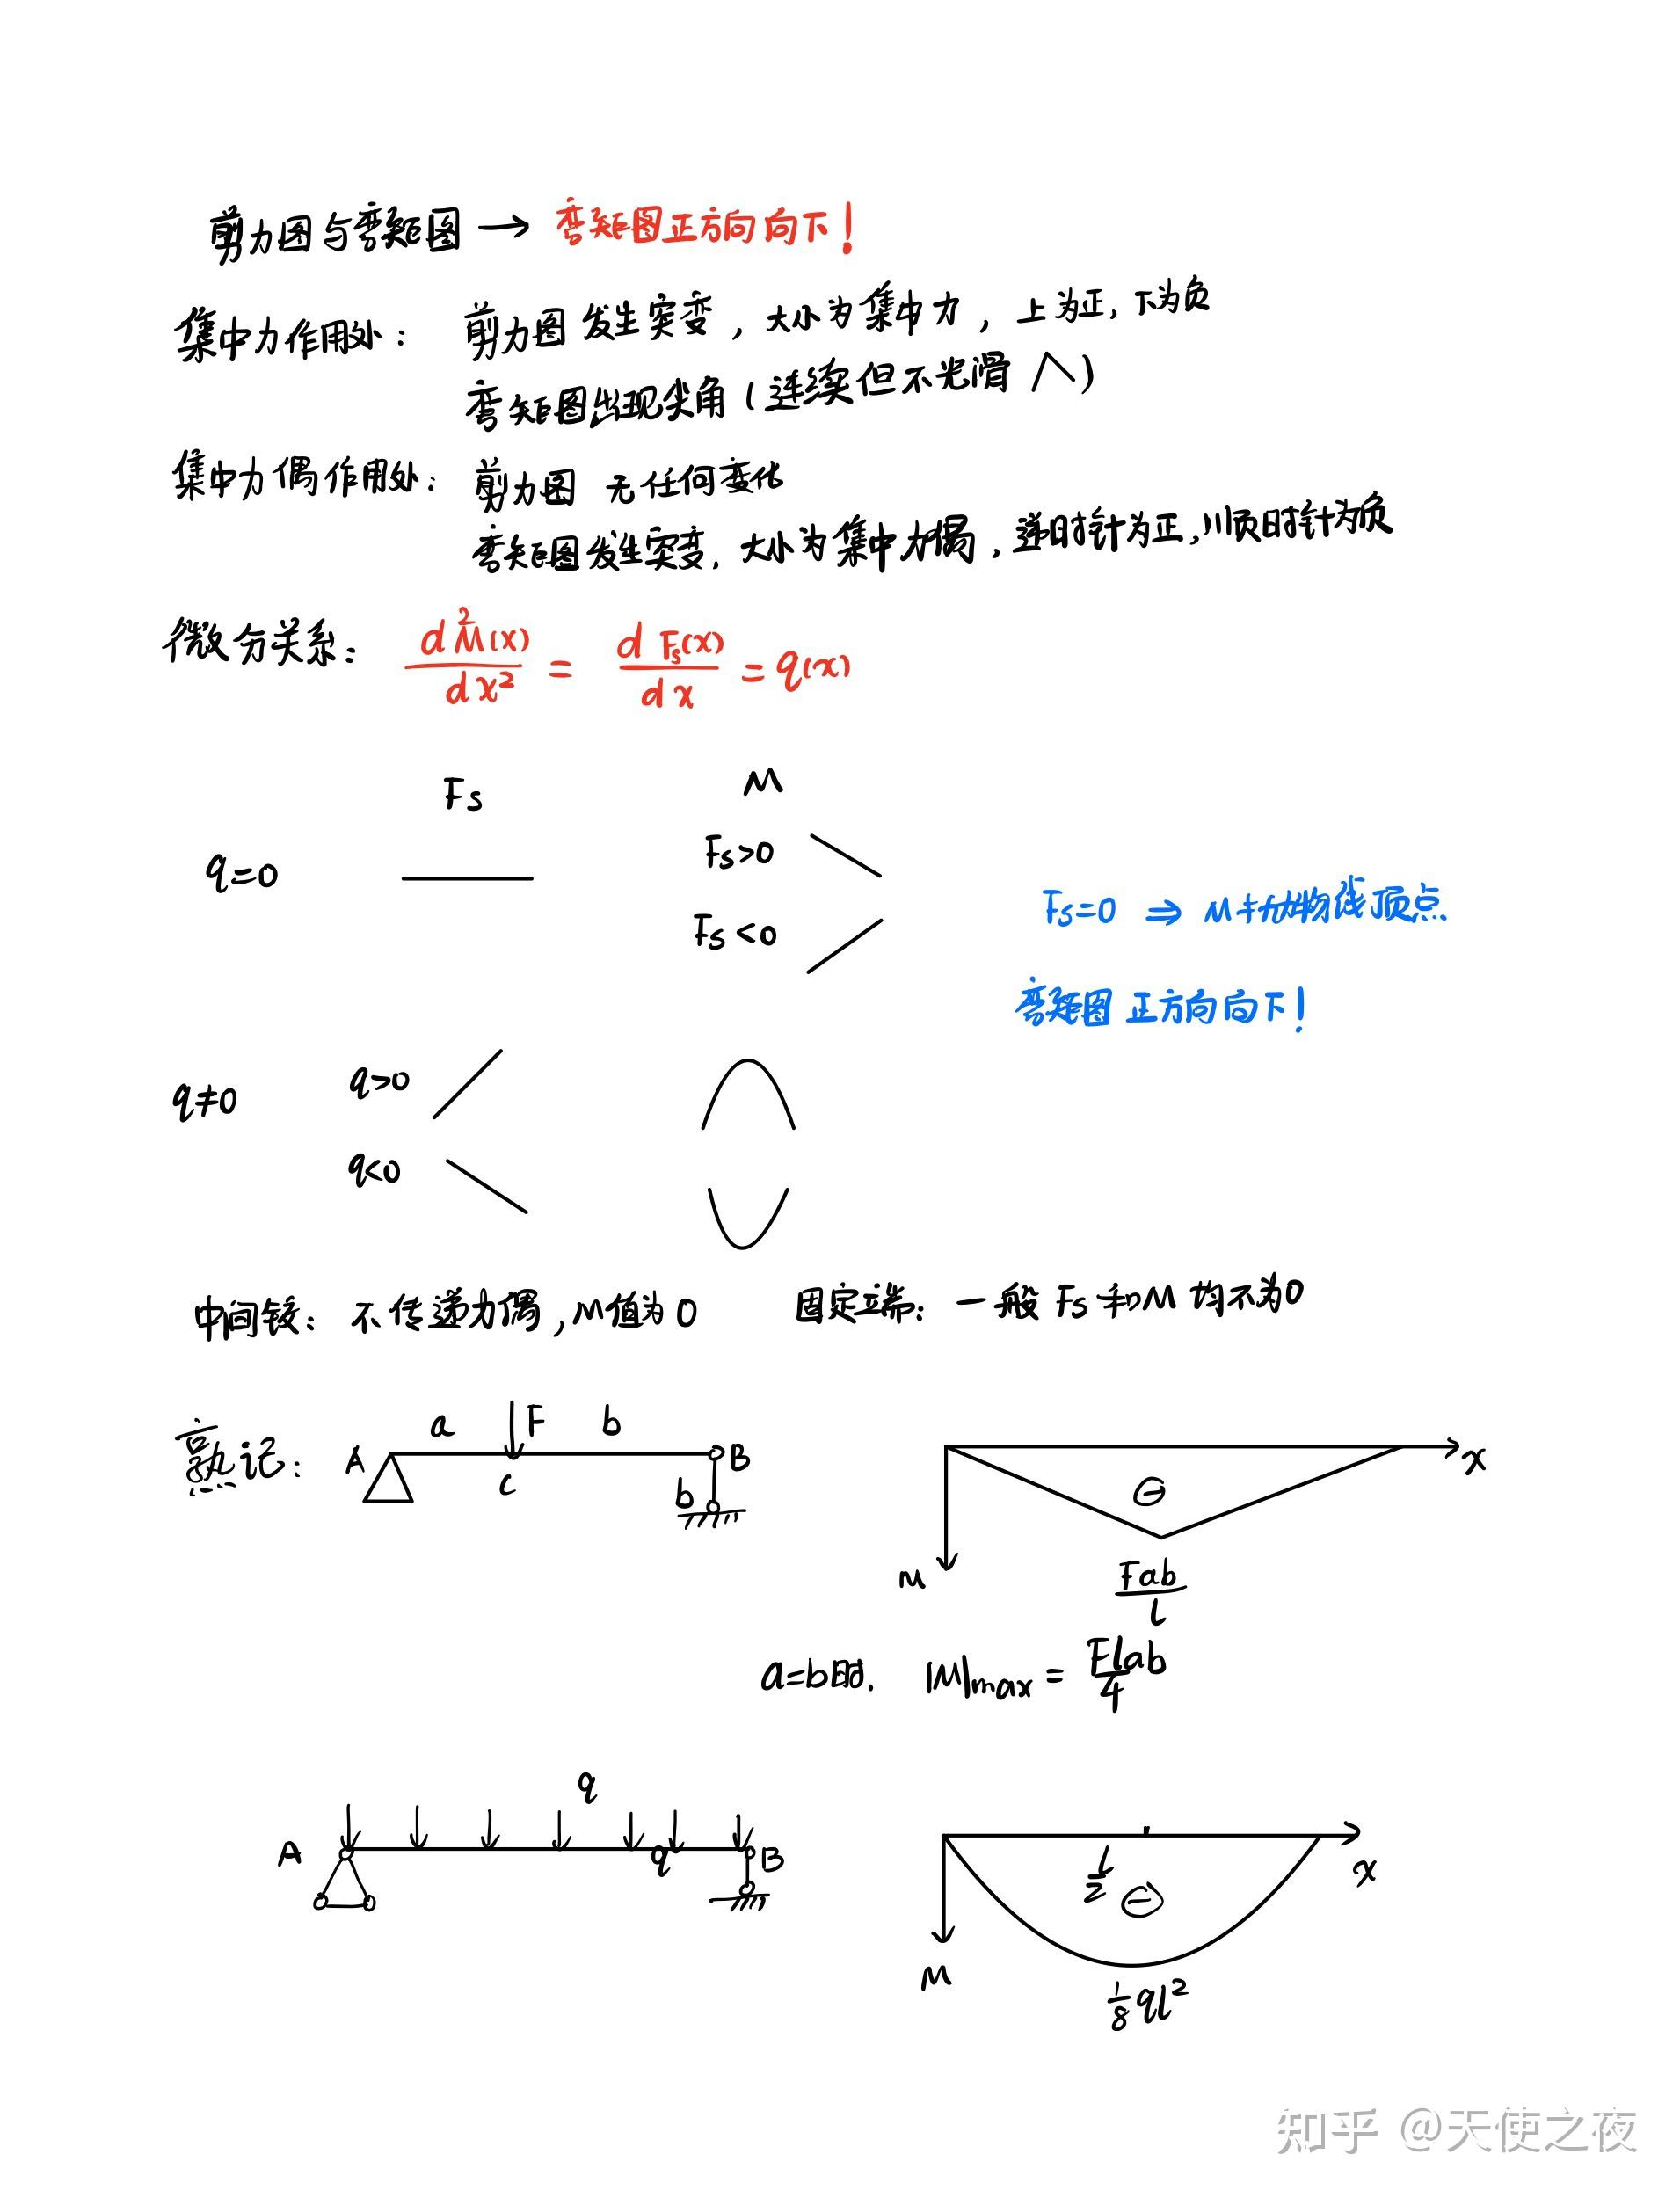 剪力图与弯矩图 → 弯矩图正方向向下!
集中力作用处: 剪力图发生突变,大小为集中力,上为正,下为负
弯矩图出现尖角(连续但不光滑 ∧)
集中力偶作用处: 剪力图 无任何变化
弯矩图发生突变,大小为集中力偶,逆时针为正,顺时针为负
微分关系: d²M(x)/dx² = dFs(x)/dx = q(x)
Fs M
q=0 Fs>0
Fs<0
Fs=0 ⇒ M抛物线顶点
弯矩图 正方向向下!
q≠0 q>0
q<0
中间铰: 不传递力偶,M值为0 固定端: 一般 Fs 和 M 均不为0
熟记: A a F b B
c b
x
⊖
M
Fab/l
a=b时. |M|max = Flab/4
q
A q B
x
l/2
⊖
M
1/8 ql²
知乎 @天使之夜